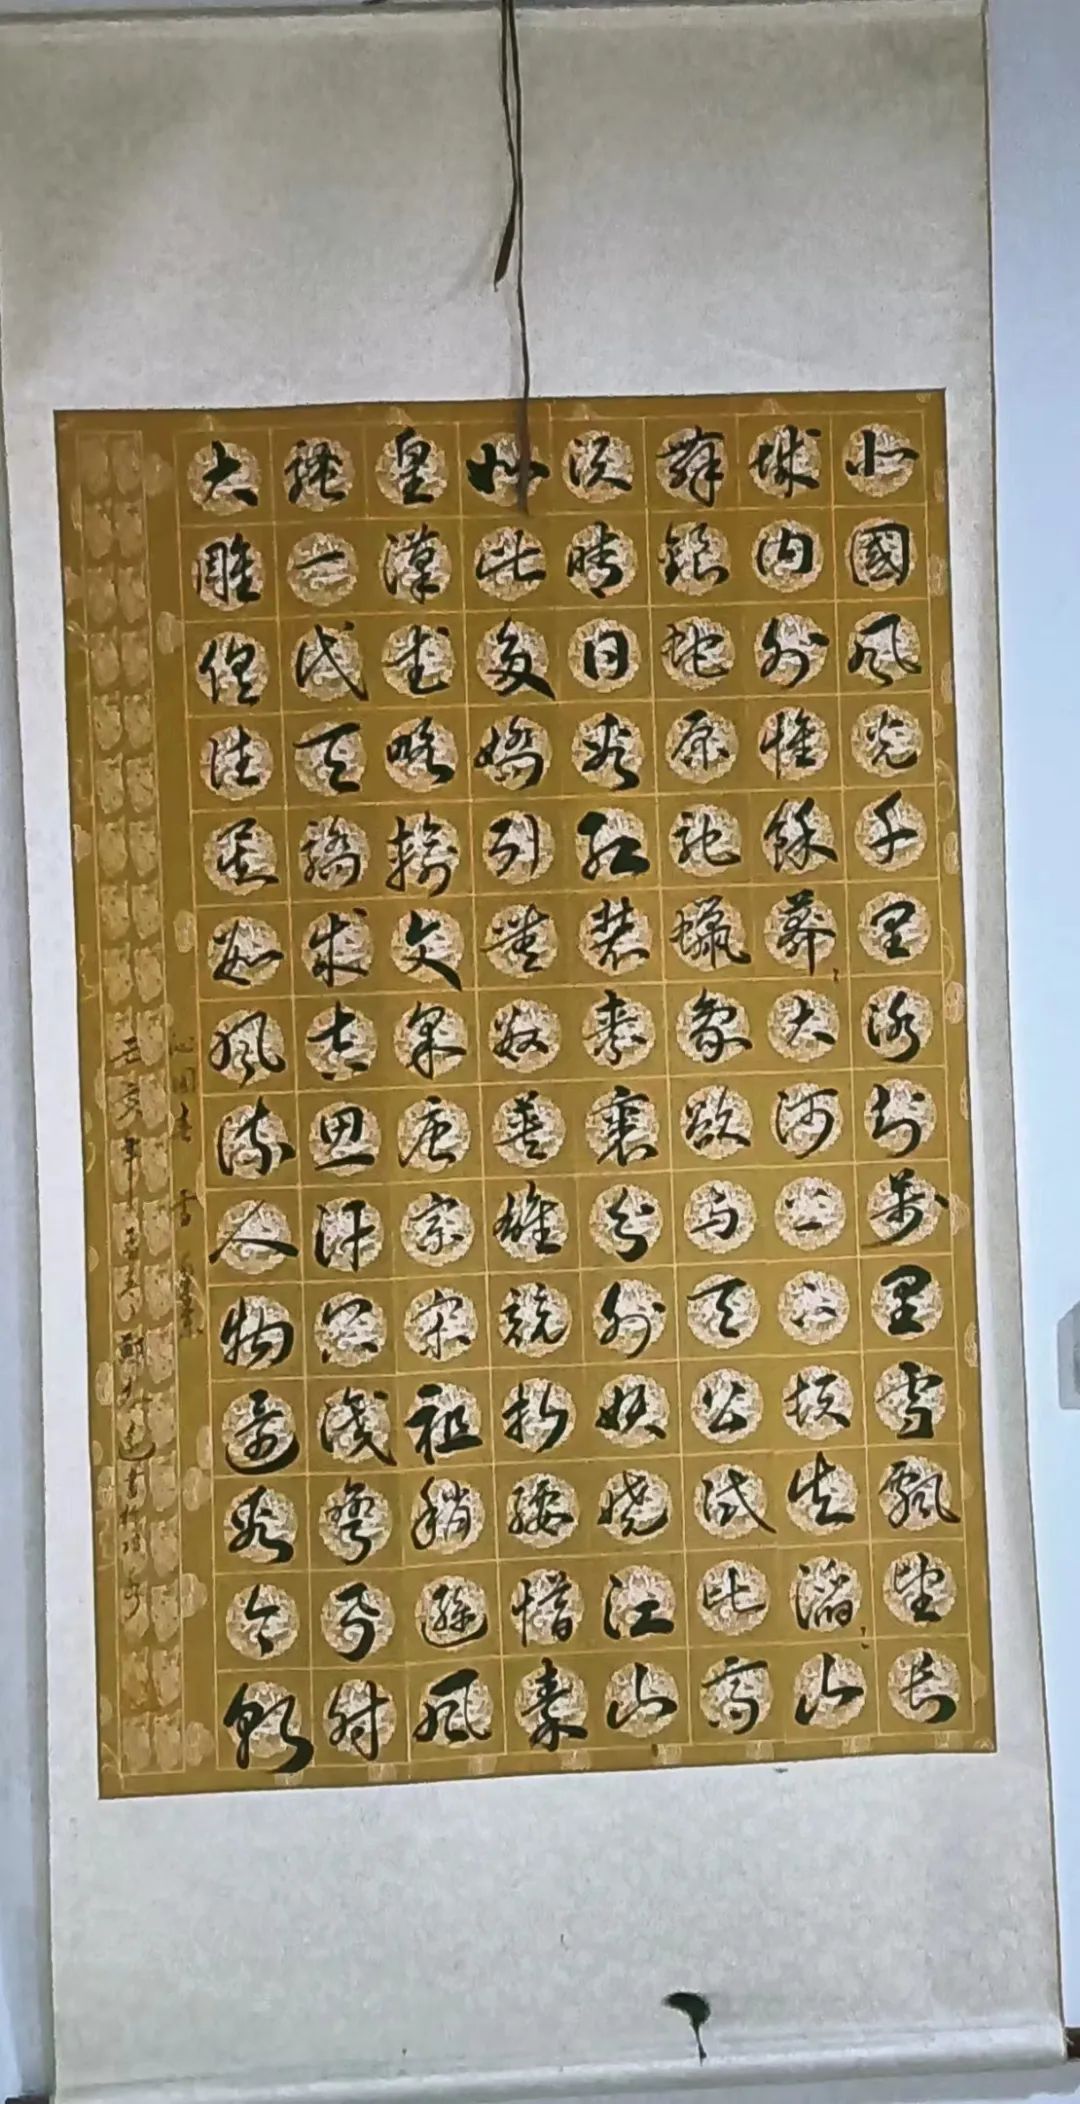 北國风光千里冰封萬里雪飄望長
城内外惟餘莽〻大河上下頓失滔〻山
舞銀蛇原馳蠟象欲与天公試比高
須晴日看紅裝素裹分外妖嬈江山
如此多嬌引無数英雄競折腰惜秦
皇漢武略輸文采唐宗宋祖稍遜风
騷一代天驕成吉思汗只識彎弓射
大雕俱往矣數風流人物還看今朝
沁園春 雪
己亥年